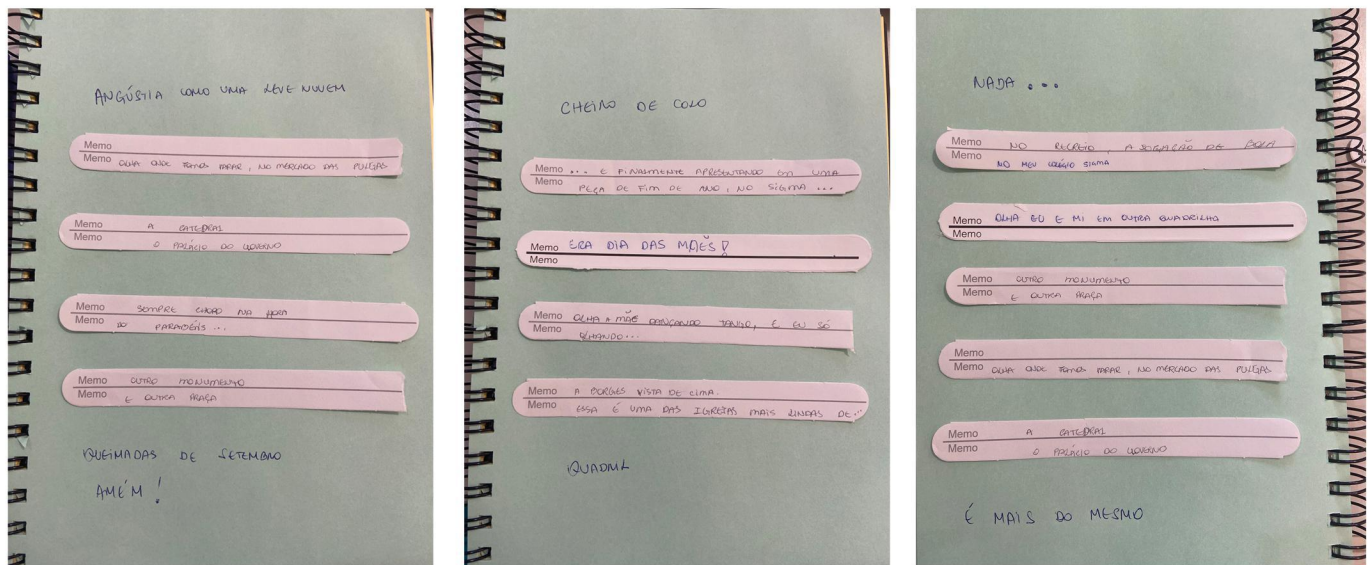 ANGÚSTIA COMO UMA LEVE NUVEM
Memo
Memo OLHA ONDE FOMOS PARAR, NO MERCADO DAS PULGAS
Memo A CATEDRAL
Memo O PALÁCIO DO GOVERNO
Memo SEMPRE CHORO NA HORA
Memo DO PARABÉNS ...
Memo OUTRO MONUMENTO
Memo E OUTRA PRAÇA
QUEIMADAS DE SETEMBRO
AMÉM!
CHEIRO DE COLO
Memo ... E FINALMENTE APRESENTANDO EM UMA
Memo PEÇA DE FIM DE ANO, NO SIGMA ...
Memo ERA DIA DAS MÃES!
Memo
Memo OLHA A MÃE DANÇANDO TANGO, E EU SÓ
Memo OLHANDO...
Memo A BORGES VISTA DE CIMA.
Memo ESSA É UMA DAS IGREJAS MAIS LINDAS DE...
QUADRIL
NADA ...
Memo NO RECREIO, A JOGAÇÃO DE BOLA
Memo NO MEU COLÉGIO SIGMA
Memo OLHA EU E MI EM OUTRA QUADRILHA
Memo
Memo OUTRO MONUMENTO
Memo E OUTRA PRAÇA
Memo
Memo OLHA ONDE FOMOS PARAR, NO MERCADO DAS PULGAS
Memo A CATEDRAL
Memo O PALÁCIO DO GOVERNO
É MAIS DO MESMO